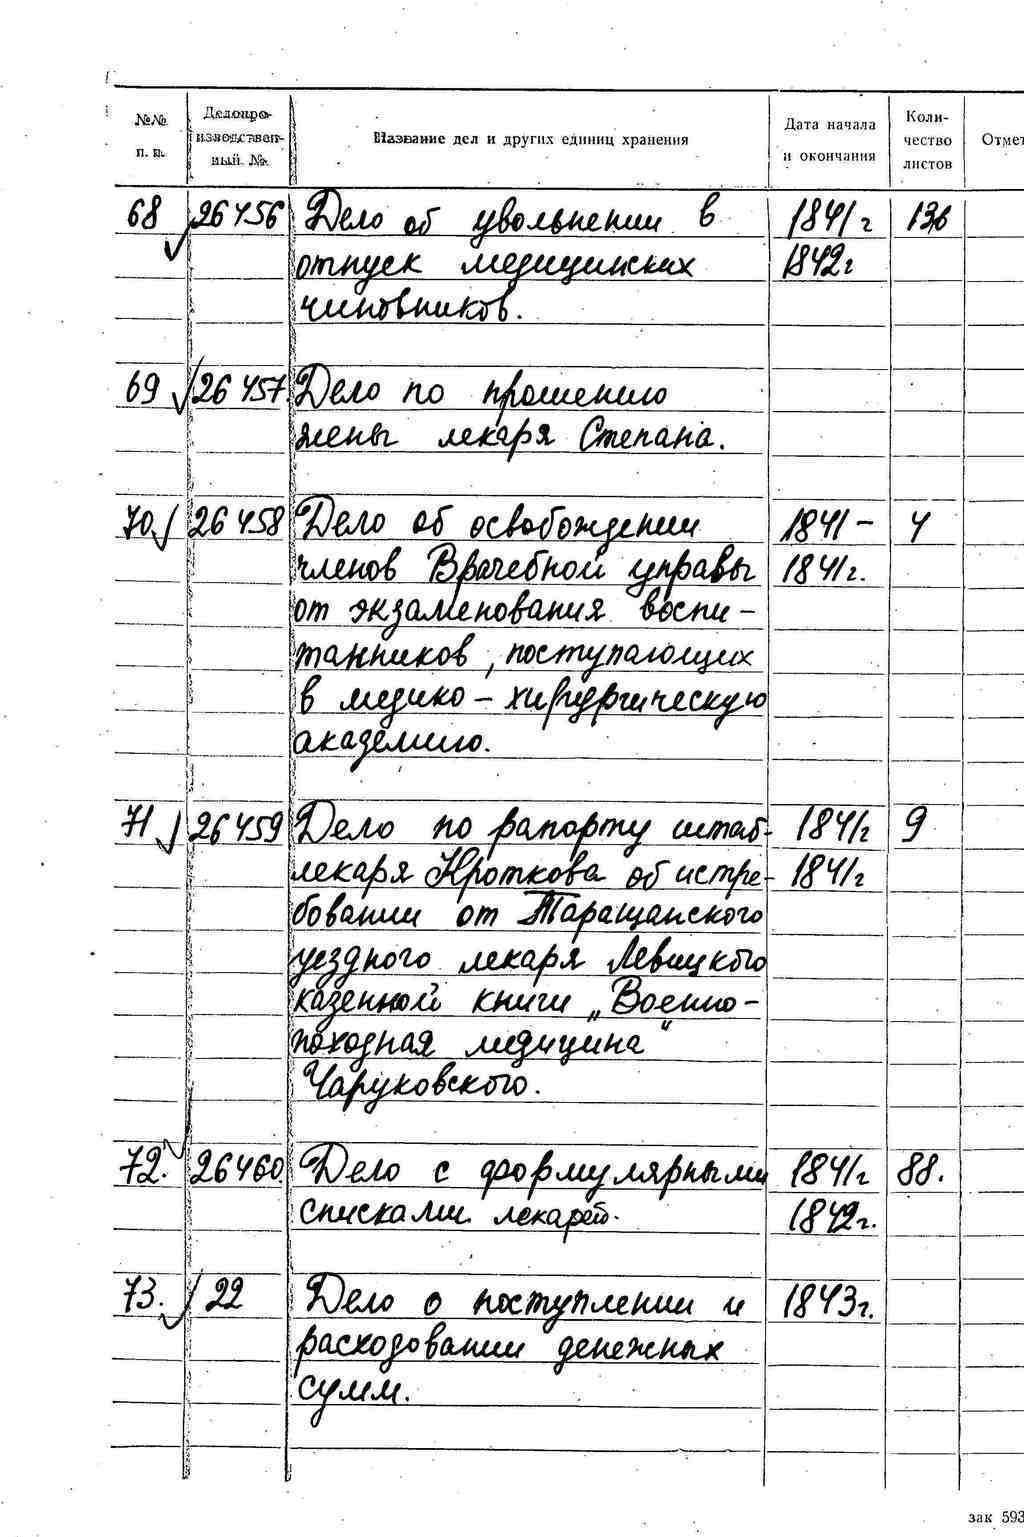 №№ п. п. Делопроизводственный № Название дел и других единиц хранения Дата начала и окончания Количество листов Отмет
68 26456 Дело об увольнении в 1841г 136
отпуск медицинских 1842г
чиновников.
69 26457 Дело по прошению
жены лекаря Степана.
70. 26458 Дело об освобождении 1841- 4
членов Врачебной управы 1841г.
от экзаменования воспи-
танников, поступающих
в медико-хирургическую
академию.
71 26459 Дело по рапорту штаб- 1841г 9
лекаря Кроткова об истре- 1841г
бовании от Таращанского
уездного лекаря Левицкого
казенной книги „Военно-
походная медицина"
Чаруковского.
72. 26460. Дело с формулярными 1841г 88.
списками лекарей. 1842г.
73. 22 Дело о поступлении и 1843г.
расходовании денежных
сумм.
зак 593